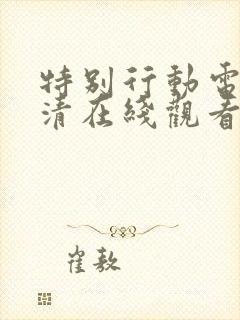 特别行動電
清在綫觀看
崔敖